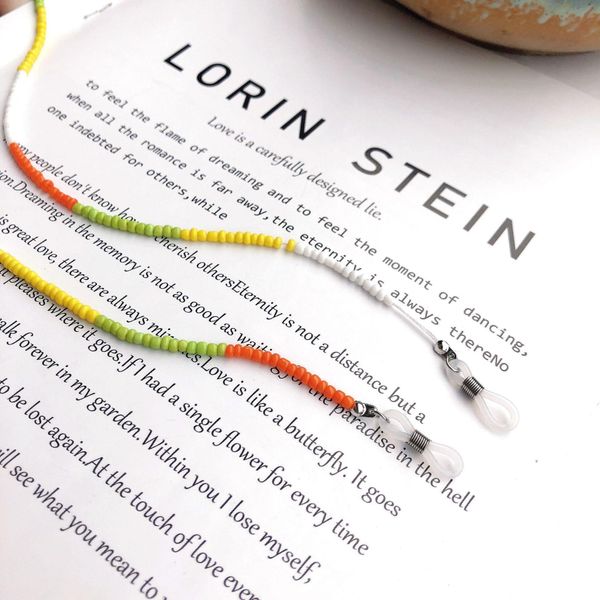 LORIN STEIN
Love is a carefully designed lie.
to feel the flame of dreaming and to feel the moment of dancing,
when all the romance is far away,the eternity is always thereNo
one indebted for others,while
many people don't know how cherish othersEternity is not a distance but a
ion.Dreaming in the memory is not as good as waiting for the paradise in the hell
is great love, there are always mistakes.Love is like a butterfly. It goes
it pleases where it goes.If I had a single flower for every time
walk forever in my garden.Within you I lose myself,
to be lost again.At the touch of love ever
will see what you mean to